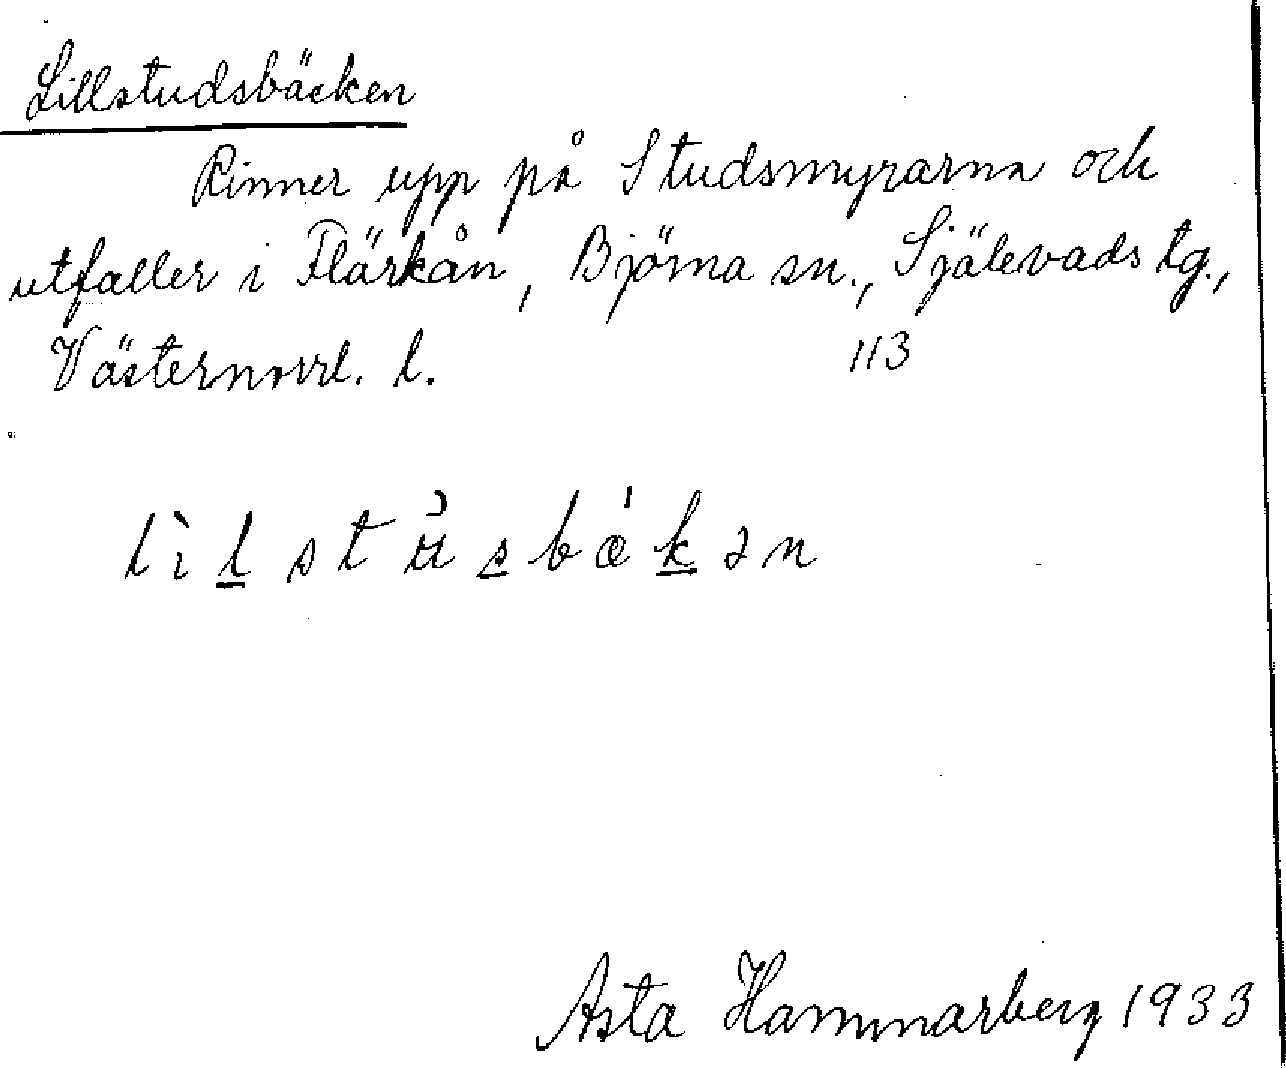 Lillstudsbäcken
Rinner upp på Studsmyrarna och
utfaller i Flärkån, Björna sn., Själevads tg.,
Västernorrl. l. 113
lìl̲stu̇s̲bœ́k̲ən
Asta Hammarberg 1933